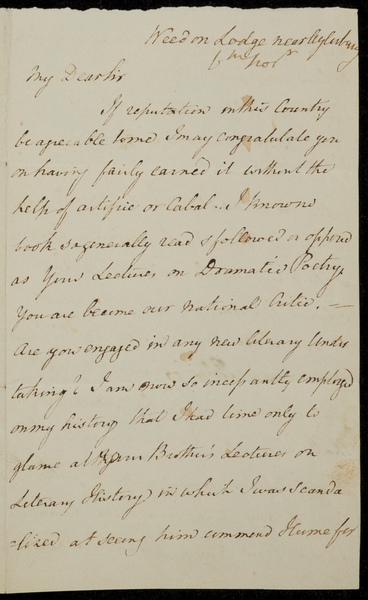 Weedon Lodge near Aylesbury
Nov.r
My Dear Sir
If reputation in this Country
be agreeable to me I may congratulate you
on having fairly earned it without the
help of artifice or Cabal.. I know no
book so generally read & followed or opposed
as Your Lectures on Dramatic Poetry.
You are become our national Critic. —
Are you engaged in any new literary Under
taking? I am now so incessantly employed
on my history that I had time only to
glance at Your Brother's Lectures on
Literary History in which I was scanda
=lized at seeing him commend Hume for